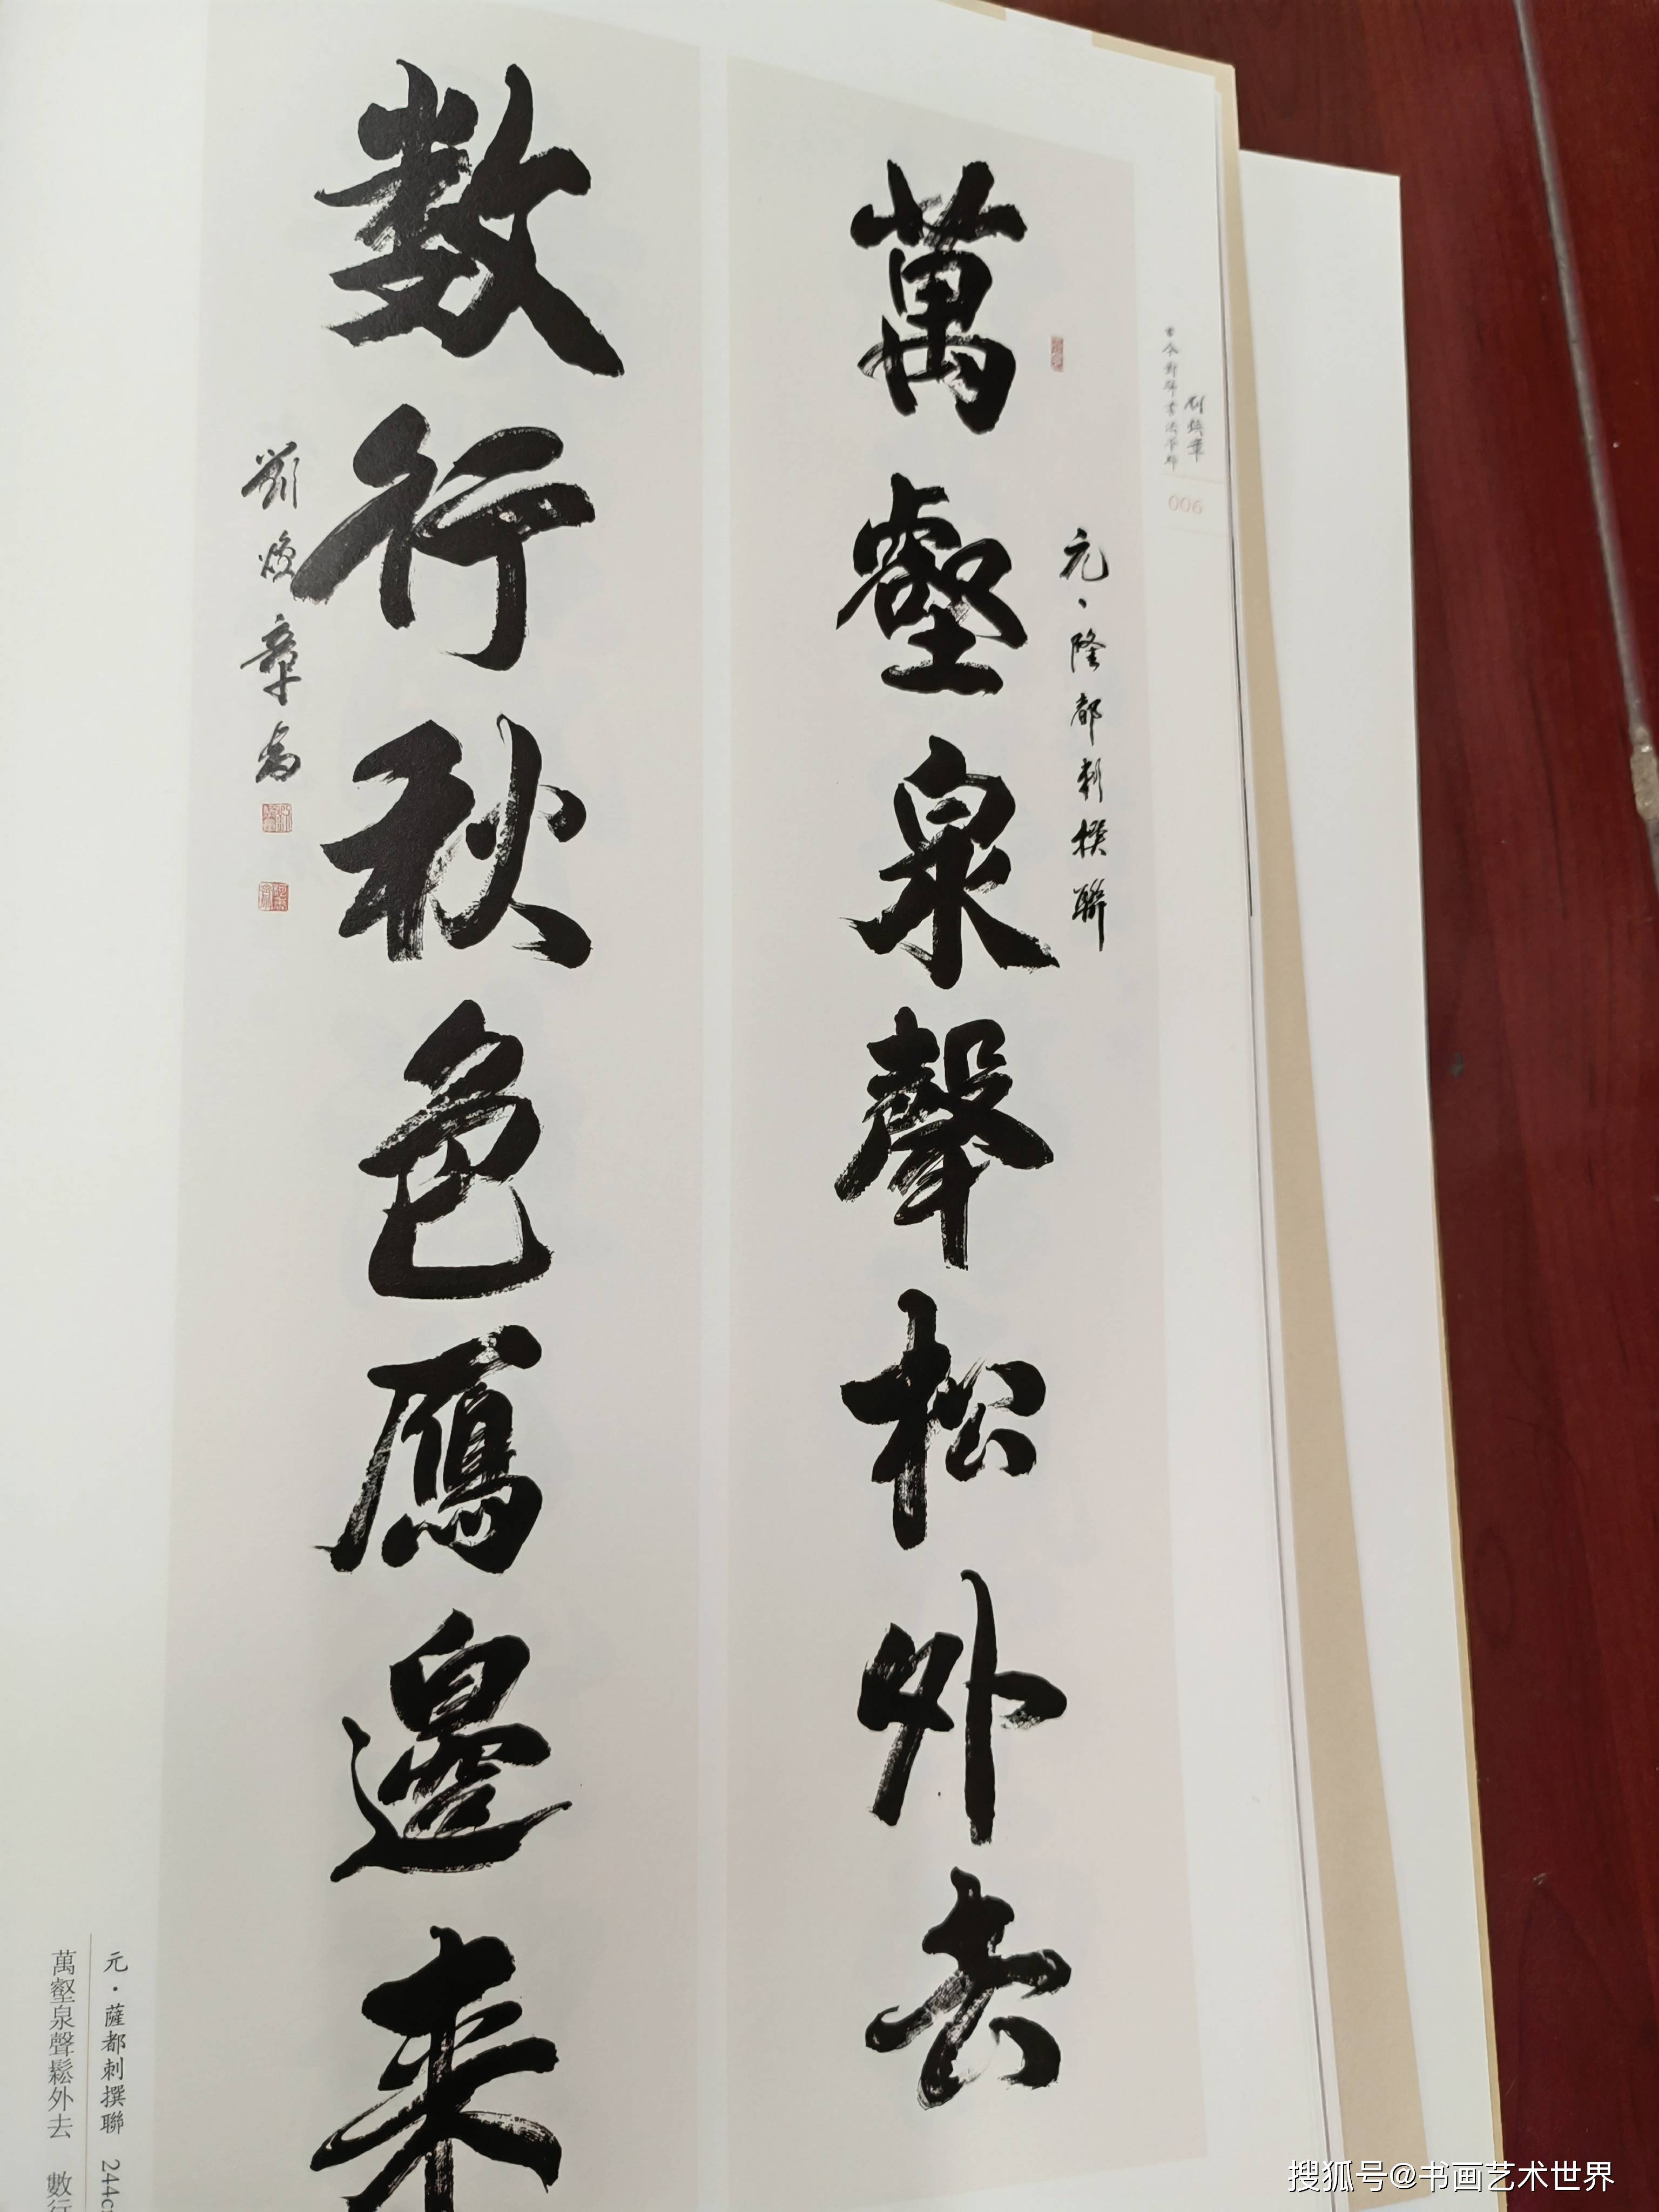 劉煥章
006
元、隆都刺撰聯
萬壑泉聲松外去
数行秋色鴈邊来
劉焕章書
元·薩都刺撰聯 244c
萬壑泉聲鬆外去 數行
搜狐号@书画艺术世界